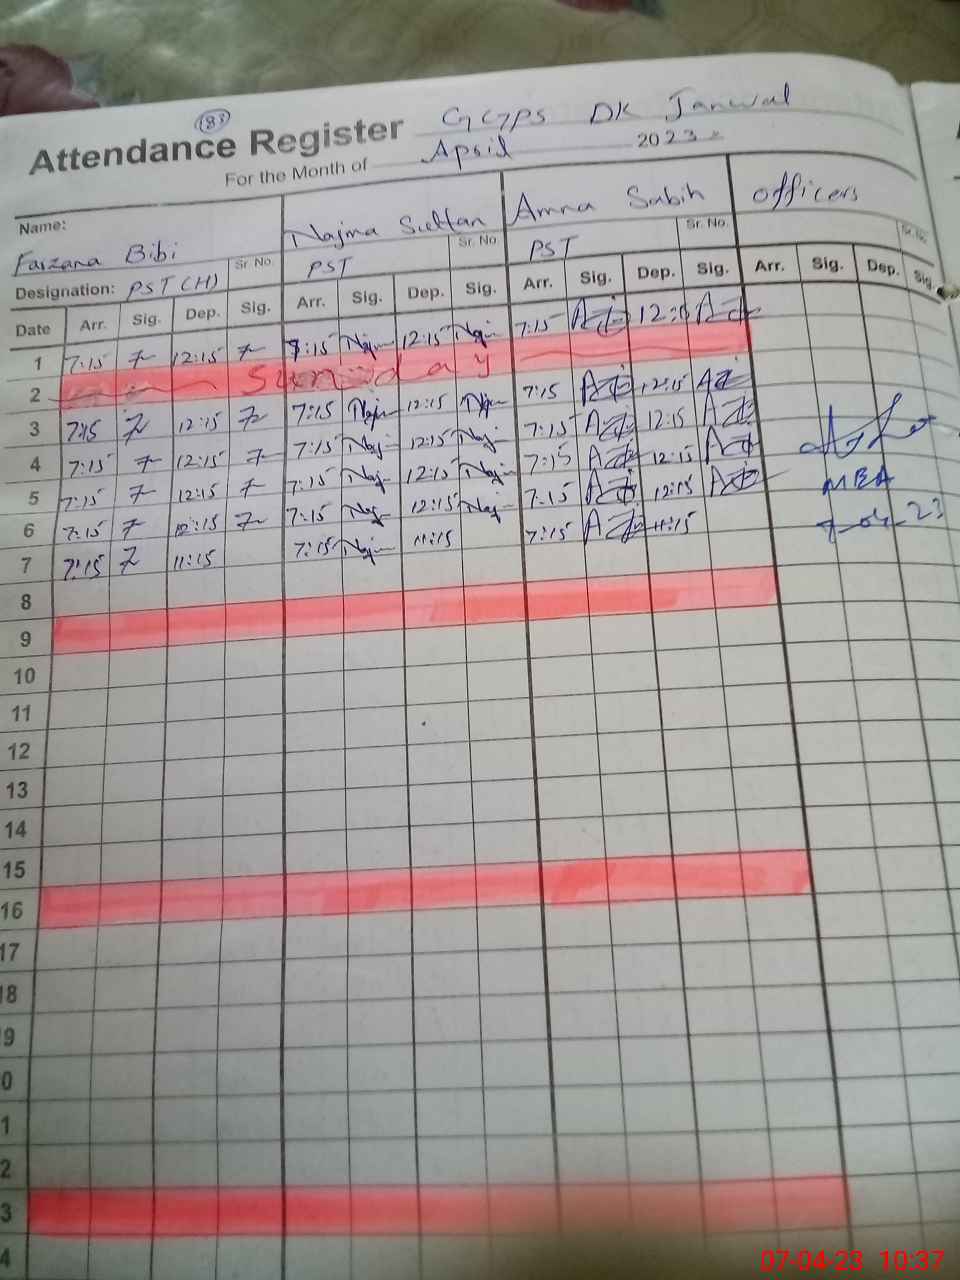 183
Attendance Register GGPS DK Janwal
For the Month of April 2023
Name: Farzana Bibi Najma Sultan Amna Sabih Officers
Sr. No. Sr. No. Sr. No. Sr. No.
Designation: PST (H) PST PST
Date Arr. Sig. Dep. Sig. Arr. Sig. Dep. Sig. Arr. Sig. Dep. Sig. Arr. Sig. Dep. Sig.
1 7:15 12:15 7:15 Naj 12:15 Naj 7:15 12:15
2 Sunday
3 7:15 12:15 7:15 Naj 12:15 Naj 7:15 12:15
4 7:15 12:15 7:15 Naj 12:15 Naj 7:15 12:15
5 7:15 12:15 7:15 Naj 12:15 Naj 7:15 12:15
6 7:15 12:15 7:15 Naj 12:15 Naj 7:15 12:15
7 7:15 11:15 7:15 Naj 11:15 7:15 11:15
MEA
23
8
9
10
11
12
13
14
15
16
17
18
9
0
1
2
3
4
07-04-23 10:37